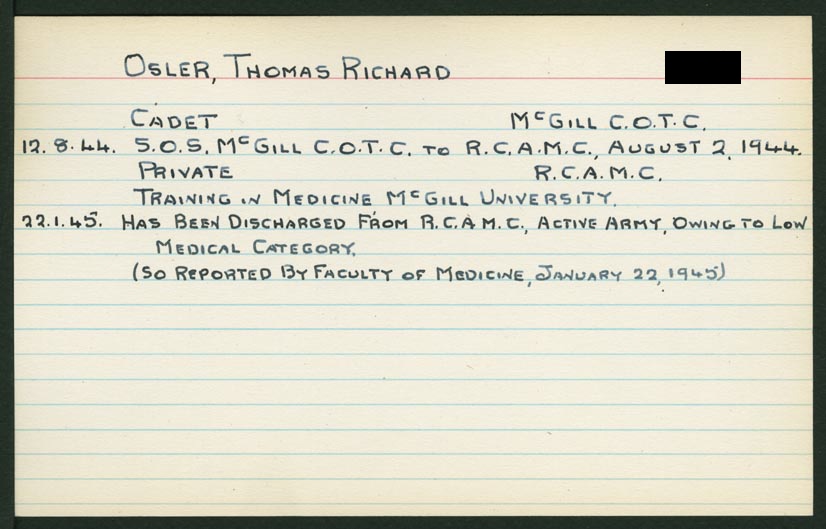 OSLER, THOMAS RICHARD
CADET McGILL C.O.T.C.
12.8.44. S.O.S. McGILL C.O.T.C. TO R.C.A.M.C., AUGUST 2, 1944.
PRIVATE R.C.A.M.C.
TRAINING IN MEDICINE McGILL UNIVERSITY.
22.1.45. HAS BEEN DISCHARGED FROM R.C.A.M.C., ACTIVE ARMY, OWING TO LOW
MEDICAL CATEGORY.
(SO REPORTED BY FACULTY OF MEDICINE, JANUARY 22, 1945)